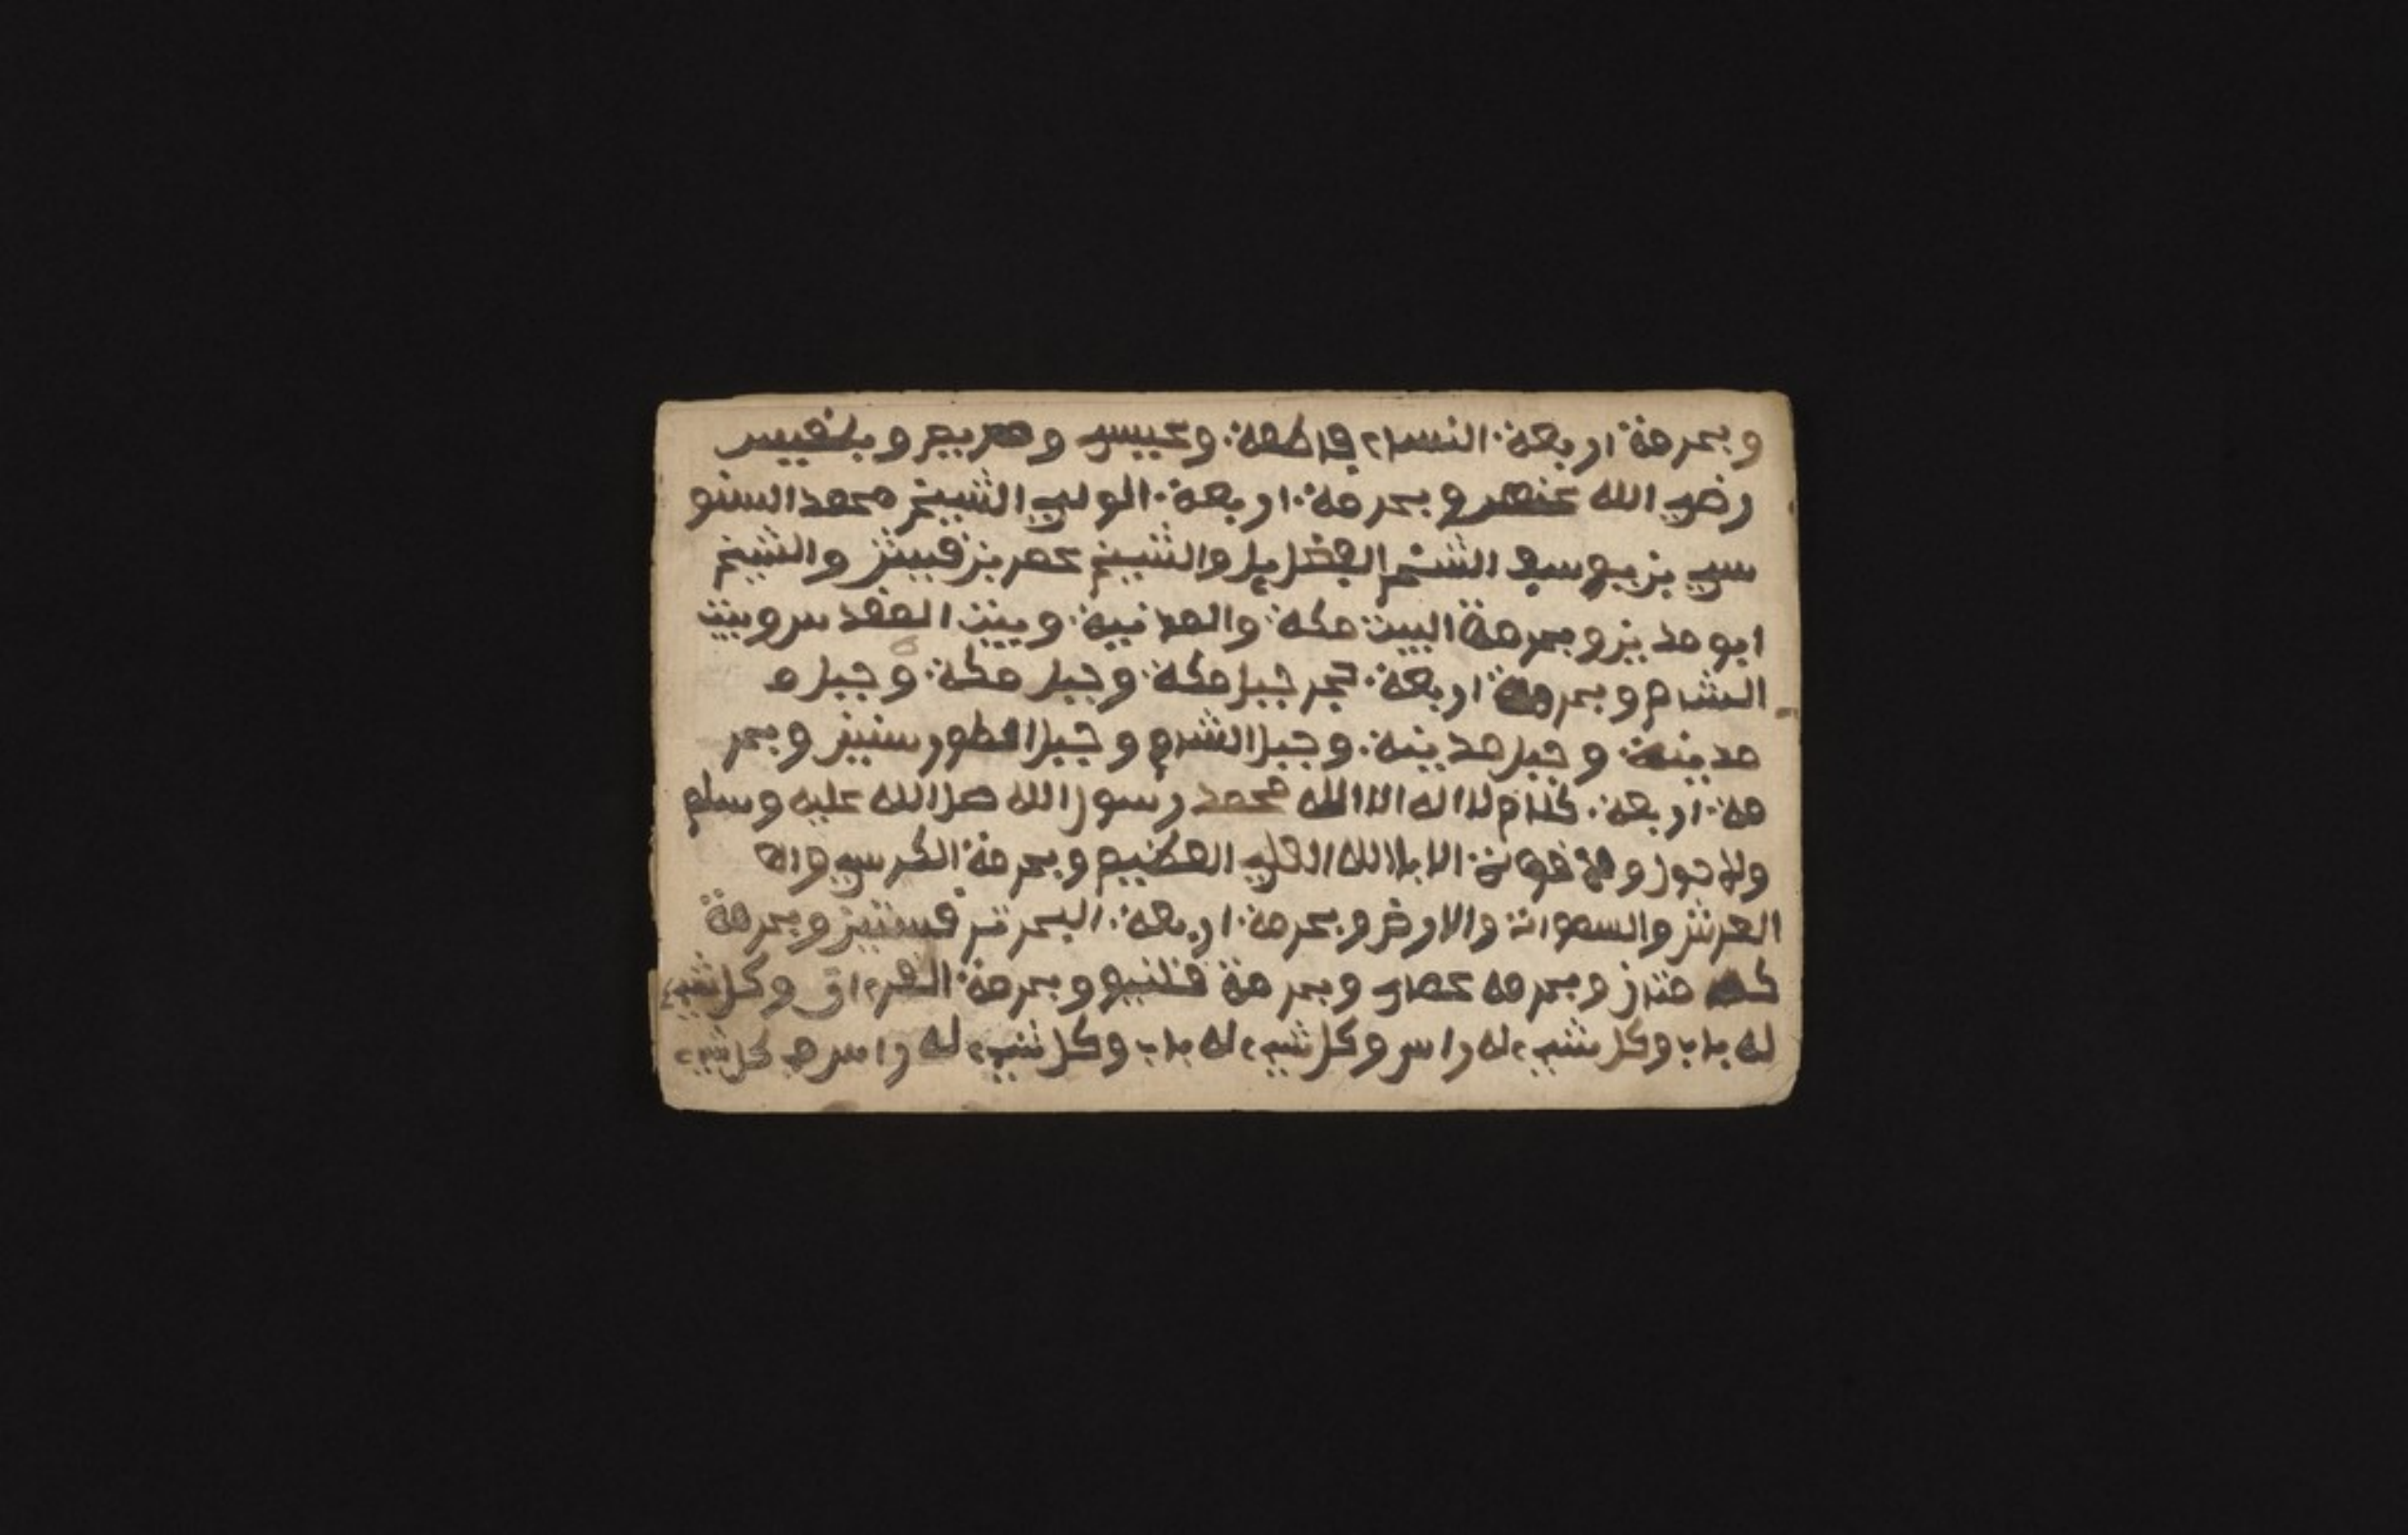 وبحرمة اربعة النساء فاطمة وعيسى ومريم وبلفيس
رضي الله عنهم وبحرمة اربعة الولي الشيخ محمد السنو
سي بن يوسف الشيخ الفضليل والشيخ عمر بن فيش والشيخ
ابو مدين وبحرمة البيت مكة والمدنية وبيت المفدس وبيت
الشام وبحرمة اربعة حجر جبل مكة وجبل مكة وجبل م
مدينة وجبل مدينة وجبل الشام وجبل الطور سنين وبحر
مة اربعة كلام لا اله الا الله محمد رسول الله صل الله عليه وسلم
ولا حول ولا قوة الا بالله العلي العظيم وبحرمة الكرسي
العرش والسموات والارض وبحرمة اربعة البحر وبحرمة
وبحرمه وبحرمة وبحرمة وكل شيء
له باب وكل شيء له راس وكل شيء له باب وكل شيء له راس كل شيء